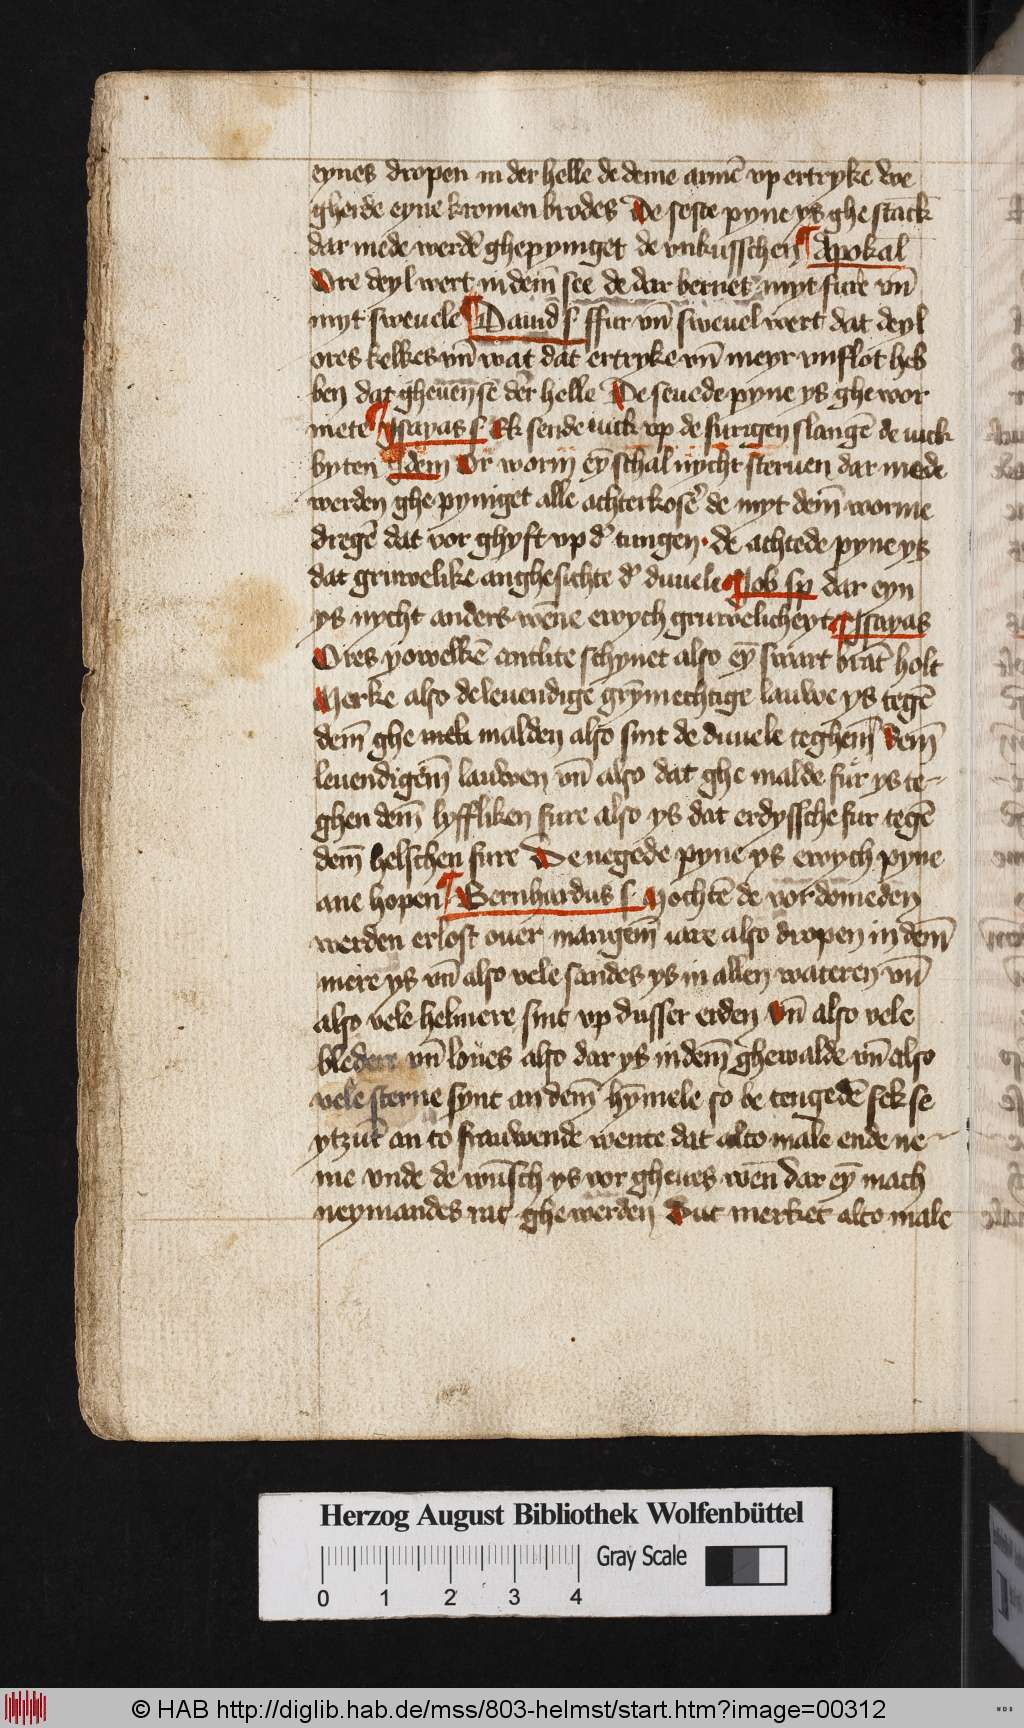 eynes dropen in der helle de deme armē vp ertryke we
gherde eyne kromen brodes De seste pyne ys ghe stack
dar mede werdē ghepyniget de vnkusschen ¶ Apokal
Ore deyl wert in dem̄ see de dar bernet myt fure vn̄
myt sweuele ¶ Dauid s ffur vn̄ sweuel wert dat deyl
ores kelkes vn̄ wat dat ertryke vn̄ meyr vnflot heb
ben dat gheuen se der helle De seuede pyne ys ghe wor
mete ¶ Isayas s Ek sende iuck vp de furigen slangē de iuck
byten Idem Or worm eȳ schal nycht steruen dar mede
werden ghe pyniget alle achterkosē de myt dem̄ worme
dregē dat vor ghyft vp d' tungen · de achtede pyne ys
dat gruwelike anghesichte d' duuele ¶ Iob sp dar eyn
ys nycht anders wēne ewych gruwelicheyt ¶ Isayas
Ores yowelkē antlite schynet also eȳ swart brāt holt
Merke also de leuendige grȳmechtige lauwe ys tegē
dem̄ ghe malden also sint de duuele teghem̄ dem̄
leuendigem̄ lauwen vn̄ also dat ghe malde fur ys te-
ghen dem̄ lyffliken fure also ys dat erdyssche fur tegē
dem̄ helschen fure De negede pyne ys ewych pyne
ane hopen ¶ Bernhardus s Mochtē de vordomeden
werden erlost ouer mangem̄ iare also dropen in dem̄
mere ys vn̄ also vele sandes ys in allen wateren vn̄
also vele helmere sint vp dusser erden Vn̄ also vele
bledere vn̄ loues also dar ys in dem̄ ghewalde vn̄ also
vele sterne synt an dem̄ hȳmele so be tengedē sek se
ytzūt an to frauwende wente dat alto male ende ne-
me vnde de wūsch ys vor gheues wēn dar eȳ mach
neymandes rat ghe werden Dut merket alto male
Herzog August Bibliothek Wolfenbüttel
0 1 2 3 4
Gray Scale
© HAB http://diglib.hab.de/mss/803-helmst/start.htm?image=00312